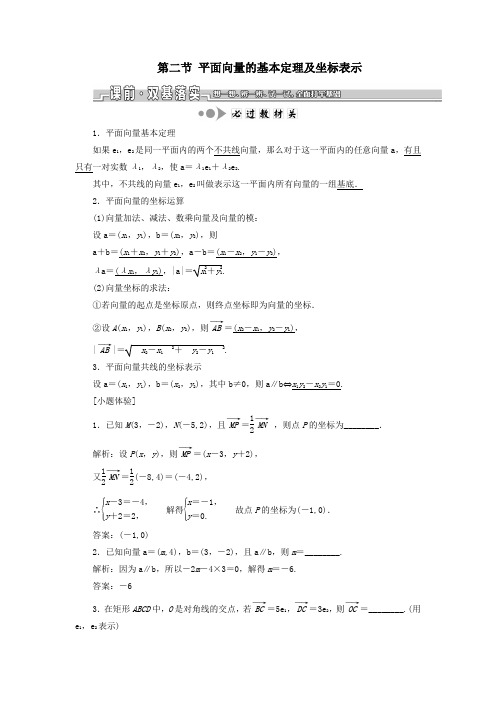 第二节 平面向量的基本定理及坐标表示
课前·双基落实 想一想、辨一辨、试一试、全面打牢基础
必过教材关
1.平面向量基本定理
如果e₁,e₂是同一平面内的两个不共线向量,那么对于这一平面内的任意向量a,有且
只有一对实数λ₁,λ₂,使a=λ₁e₁+λ₂e₂.
其中,不共线的向量e₁,e₂叫做表示这一平面内所有向量的一组基底.
2.平面向量的坐标运算
(1)向量加法、减法、数乘向量及向量的模:
设a=(x₁,y₁),b=(x₂,y₂),则
a+b=(x₁+x₂,y₁+y₂),a-b=(x₁-x₂,y₁-y₂),
λa=(λx₁,λy₁),|a|=√(x₁²+y₁²).
(2)向量坐标的求法:
①若向量的起点是坐标原点,则终点坐标即为向量的坐标.
②设A(x₁,y₁),B(x₂,y₂),则AB→=(x₂-x₁,y₂-y₁),
|AB→|=√ x₂-x₁ ²+ y₂-y₁ ².
3.平面向量共线的坐标表示
设a=(x₁,y₁),b=(x₂,y₂),其中b≠0,则a∥b⇔x₁y₂-x₂y₁=0.
[小题体验]
1.已知M(3,-2),N(-5,2),且MP→=1/2 MN→,则点P的坐标为________.
解析:设P(x,y),则MP→=(x-3,y+2),
又1/2 MN→=1/2(-8,4)=(-4,2),
∴{x-3=-4, y+2=2, 解得{x=-1, y=0. 故点P的坐标为(-1,0).
答案:(-1,0)
2.已知向量a=(m,4),b=(3,-2),且a∥b,则m=________.
解析:因为a∥b,所以-2m-4×3=0,解得m=-6.
答案:-6
3.在矩形ABCD中,O是对角线的交点,若BC→=5e₁,DC→=3e₂,则OC→=________.(用
e₁,e₂表示)